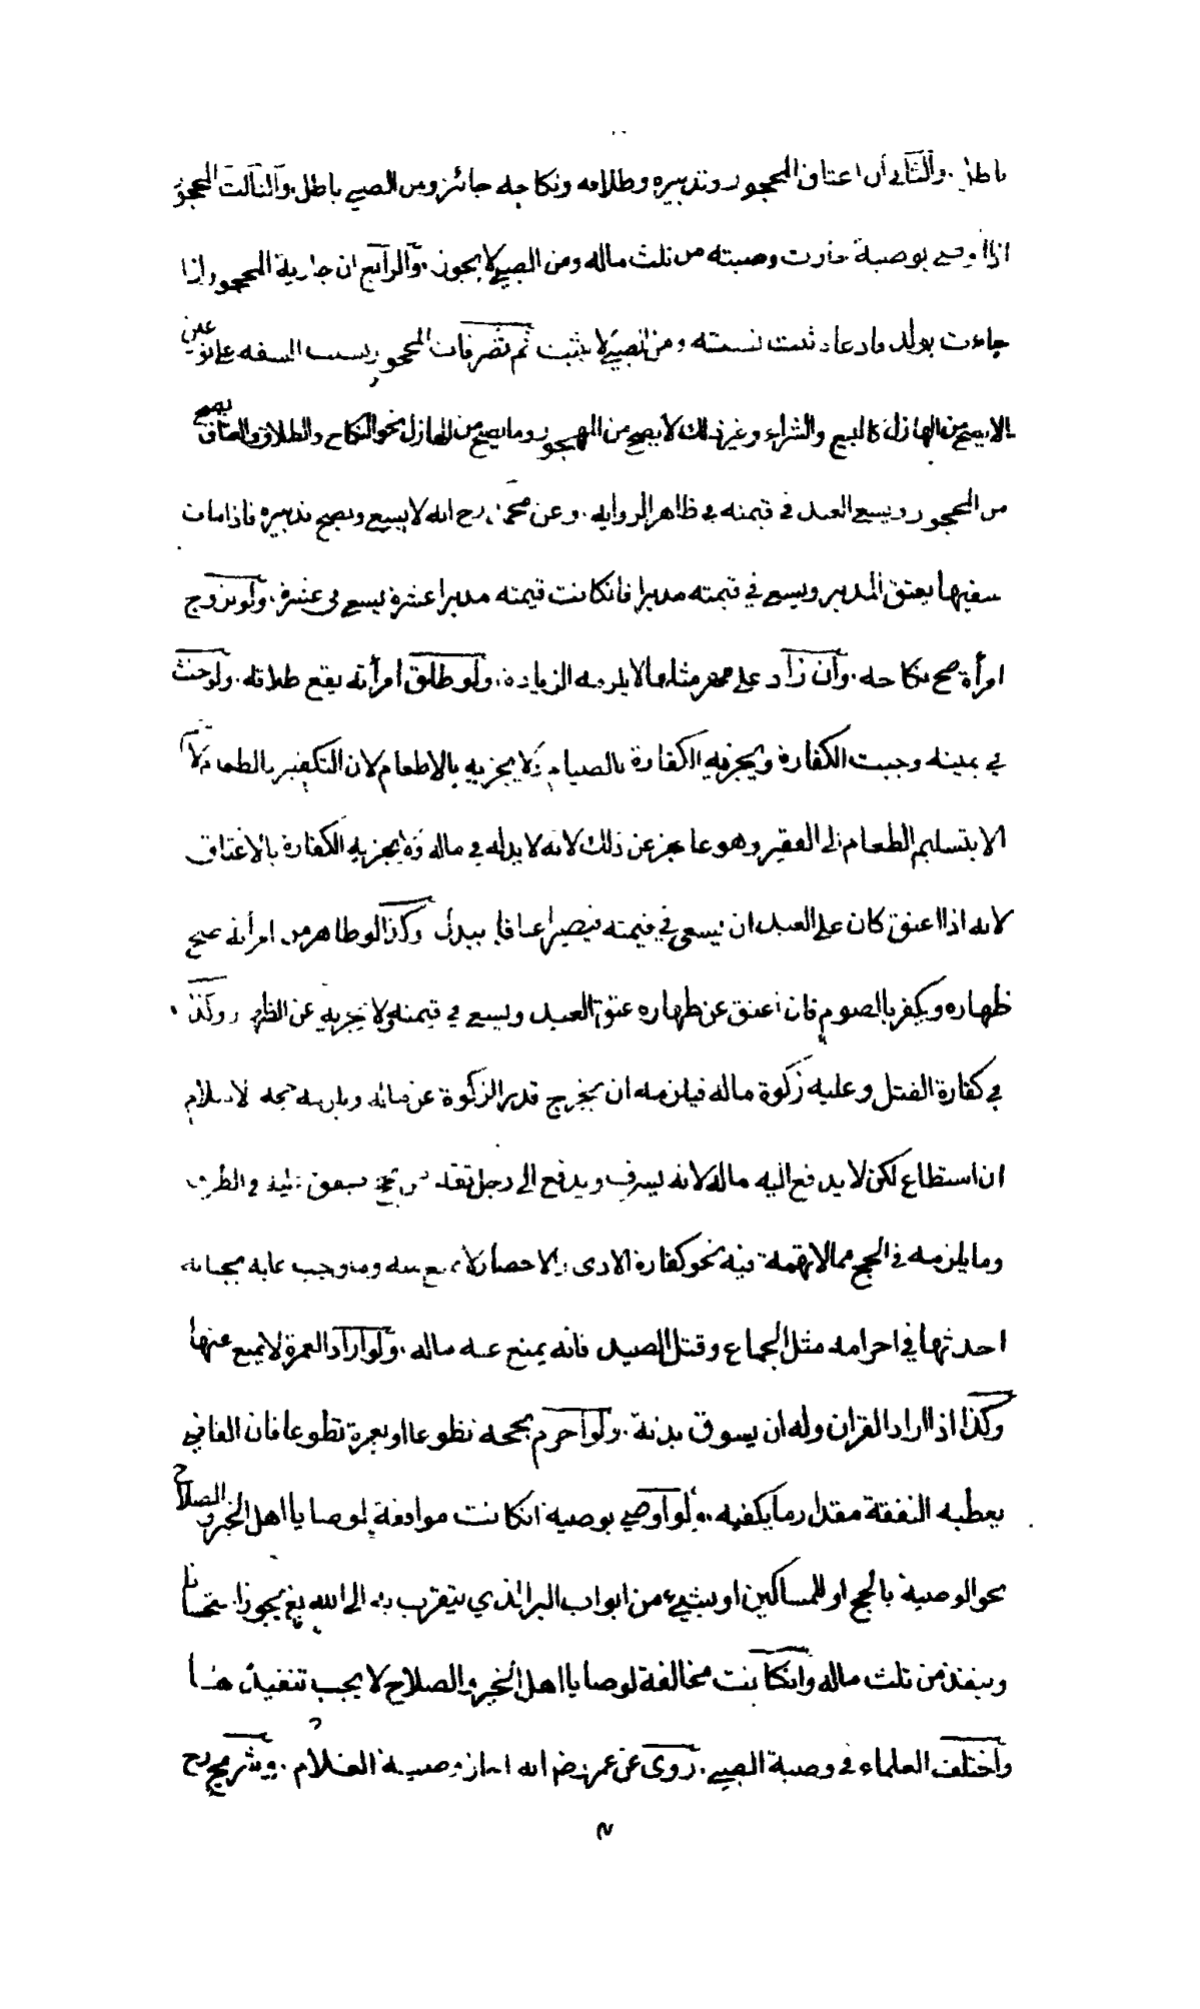 باطل. والثاني أن اعتاق المحجور وتدبيره وطلاقه ونكاحه جائز ومن الصبي باطل. والثالث المحجور
اذا اوصى بوصية جازت وصيته من ثلث ماله ومن الصبي لا يجوز. والرابع ان جارية المحجور اذا
جاءت بولد فادعاه ثبت نسبته ومن الصبي لا يثبت ثم تصرفات المحجور بسبب السفه على نوعين
الا يصح من الهازل كالبيع والشراء وغير ذلك لا يصح من المحجور وما يصح من الهازل نحو النكاح والطلاق والعتاق يصح
من المحجور ويسعى العبد في قيمته في ظاهر الرواية. وعن محمد رح انه لا يسعى ويصح تدبيره فاذا مات
سفيها يعتق المدبر ويسعى في قيمته مدبرا فانكانت قيمته مدبرا عشرة يسعى في عشرة. ولو تزوج
امرأة صح نكاحه. وان زاد على مهر مثلها لا يلزمه الزيادة. ولو طلق امرأته يقع طلاقه. ولو حنث
في يمينه وجبت الكفارة ويجزيه الكفارة بالصيام ولا يجزيه بالاطعام لان التكفير بالطعام لا
الا بتسليم الطعام الى الفقير وهو عاجز عن ذلك لانه لا يد له في ماله ولا يجزيه الكفارة بالاعتاق
لانه اذا اعتق كان على العبد ان يسعى في قيمته فيصير اعتاقا ببدل وكذا لو ظاهر من امرأته صح
ظهاره ويكفر بالصوم فان اعتق عن ظهاره عتق العبد ويسعى في قيمته ولا يجزيه عن الظهار وكذا
في كفارة القتل وعليه زكوة ماله فيلزمه ان يخرج قدر الزكوة عن ماله ويلزمه حجة الاسلام
ان استطاع لكن لا يدفع اليه ماله لانه يسرف ويدفع الى رجل ثقة في الطريق
وما يلزمه في الحج مما لا تهمة فيه نحو كفارة الاذى والاحصار لا يمنع منه وما وجب عليه بجناية
احدثها في احرامه مثل الجماع وقتل الصيد فانه يمنع عنه ماله. ولو اراد العمرة لا يمنع عنها
وكذا اذا اراد القران وله ان يسوق بدنة. ولو احرم بحجة تطوعا او بعمرة تطوعا فان القاضي
يعطيه النفقة مقدار ما يكفيه. ولو اوصى بوصية انكانت موافقة لوصايا اهل الخير والصلاح
نحو الوصية بالحج او للمساكين او بشيء من ابواب البر الذي يتقرب به الى الله تع يجوز استحسانا
وينفذ من ثلث ماله وانكانت مخالفة لوصايا اهل الخير والصلاح لا يجب تنفيذها
واختلف العلماء في وصية الصبي. روى عن عمر رضه انه اجاز وصية الغلام. وشريح رح